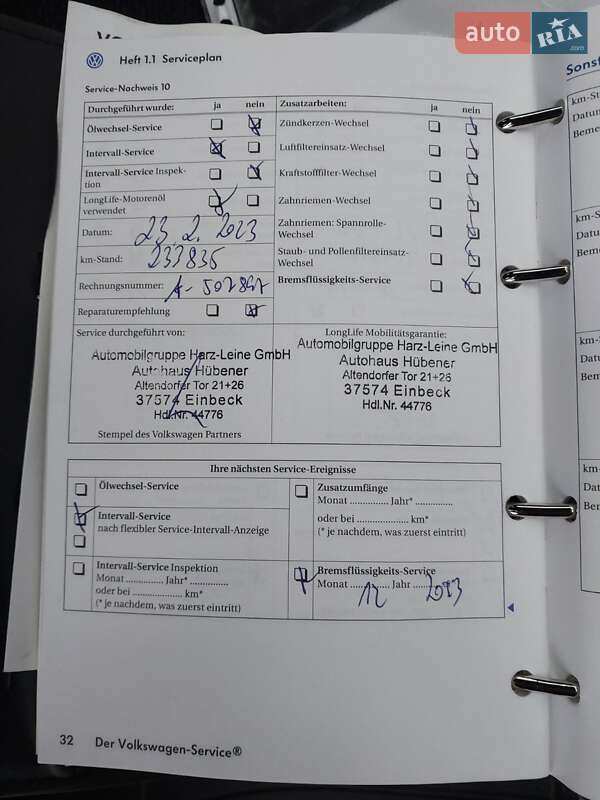 auto RIA .com
VO
Heft 1.1 Serviceplan
Service-Nachweis 10
Durchgeführt wurde: ja nein
Ölwechsel-Service
Intervall-Service
Intervall-Service Inspek-
tion
LongLife-Motorenöl
verwendet
Datum: 23. 2. 2023
km-Stand: 233835
Rechnungsnummer:
Reparaturempfehlung
Zusatzarbeiten: ja nein
Zündkerzen-Wechsel
Luftfiltereinsatz-Wechsel
Kraftstofffilter-Wechsel
Zahnriemen-Wechsel
Zahnriemen: Spannrolle-
Wechsel
Staub- und Pollenfiltereinsatz-
Wechsel
Bremsflüssigkeits-Service
Service durchgeführt von:
Automobilgruppe Harz-Leine GmbH
Autohaus Hübener
Altendorfer Tor 21+26
37574 Einbeck
Hdl.Nr. 44776
Stempel des Volkswagen Partners
LongLife Mobilitätsgarantie:
Automobilgruppe Harz-Leine GmbH
Autohaus Hübener
Altendorfer Tor 21+26
37574 Einbeck
Hdl.Nr. 44776
Ihre nächsten Service-Ereignisse
Ölwechsel-Service
Intervall-Service
nach flexibler Service-Intervall-Anzeige
Intervall-Service Inspektion
Monat ............... Jahr* ...............
oder bei ................... km*
(* je nachdem, was zuerst eintritt)
Zusatzumfänge
Monat ............... Jahr* ...............
oder bei .................... km*
(* je nachdem, was zuerst eintritt)
Bremsflüssigkeits-Service
Monat 12 Jahr 2023
32 Der Volkswagen-Service®
Sonst
km-St
Datu
Beme
km-S
Datu
Beme
km-S
Datu
Bem
km-
Dat
Ben